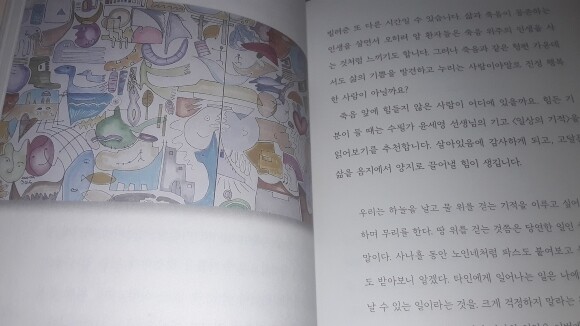 빌려준 또 다른 시간일 수 있습니다. 삶과 죽음이 공존하는
인생을 살면서 오히려 암 환자들은 죽음 위주의 인생을 사
는 것처럼 느끼기도 합니다. 그러나 죽음과 같은 험한 가운데
서도 삶의 기쁨을 발견하고 누리는 사람이야말로 진정 행복
한 사람이 아닐까요?
죽음 앞에 힘들지 않은 사람이 어디에 있을까요. 힘든 기
분이 들 때는 수필가 윤세영 선생님의 기고 <일상의 기적>을
읽어보기를 추천합니다. 살아있음에 감사하게 되고, 고달픈
삶을 음지에서 양지로 끌어낼 힘이 생깁니다.
우리는 하늘을 날고 물 위를 걷는 기적을 이루고 싶어
하며 무리를 한다. 땅 위를 걷는 것쯤은 당연한 일인
말이다. 사나흘 동안 노인네처럼 파스도 붙여보고
도 받아보니 알겠다. 타인에게 일어나는 일은 나에
날 수 있는 일이라는 것을. 크게 걱정하지 말라는